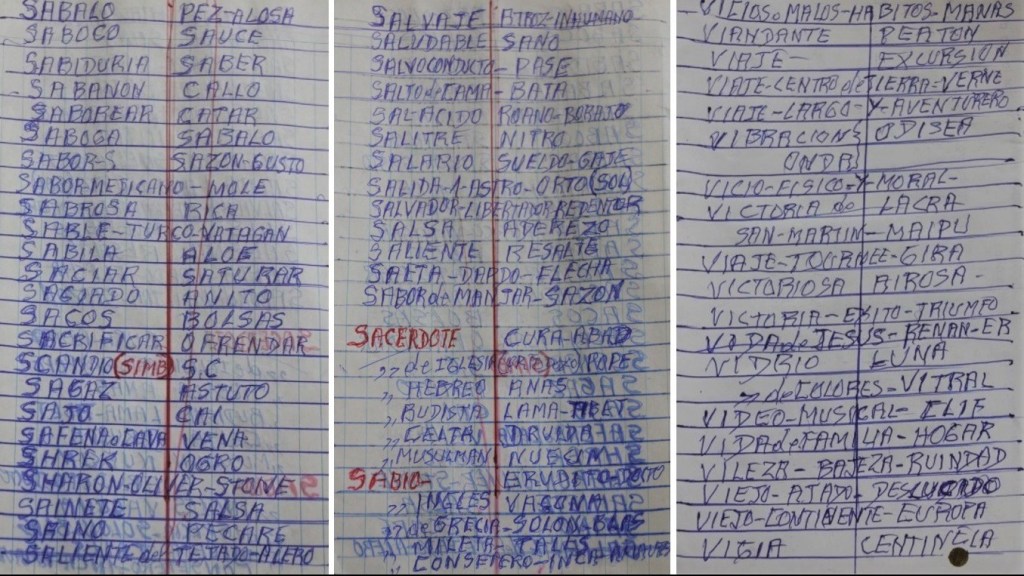 SABALO PEZ-ALOSA
SABOCO SAUCE
SABIDURIA SABER
SABANON CALLO
SABOREAR CATAR
SABOGA SABALO
SABOR-S SAZON-GUSTO
SABOR-MEJICANO-MOLE
SABROSA RICA
SABLE-TURCO-YATAGAN
SABILA ALOE
SACIAR SATURAR
SACIADO AHITO
SACOS BOLSAS
SACRIFICAR OFRENDAR
SCANDIO (SIMB) S.C
SAGAZ ASTUTO
SAJO CAI
SAFENA o CAVA VENA
SHREK OGRO
SHARON-OLIVER-STONE
SAINETE SALSA
SAINO PECARE
SALIENTE del TEJADO-ALERO
SALVAJE ATROZ-INHUMANO
SALUDABLE SANO
SALVOCONDUCTO-PASE
SALTO de CAMA-BATA
SALACIDO ROANO-BORAJO
SALITRE NITRO
SALARIO SUELDO-GAJE
SALIDA-1-ASTRO-ORTO (SOL)
SALVADOR-LIBERTADOR REDENTOR
SALSA ADEREZO
SALIENTE RESALTE
SAETA-DARDO-FLECHA
SABOR de MANJAR-SAZON
SACERDOTE CURA-ABAD
,, de IGLESIA POPE
,, HEBREO ANAS
,, BUDISTA LAMA-TIBET
,, CELTA DRUIDA
,, MUSULMAN
SABIO- ERUDITO-DOCTO
,, INGLES
,, de GRECIA-SOLON-BIAS
,, MILETO TALES
,, CONSEJERO-INCA
VIEJOS o MALOS-HABITOS-MAÑAS
VIANDANTE PEATON
VIAJE- EXCURSION
VIAJE-CENTRO de TIERRA-VERNE
VIAJE-LARGO-Y-AVENTURERO
VIBRACIONES ODISEA
ONDA
VICIO-FISICO-Y-MORAL-
VICTORIA de LACRA
SAN-MARTIN-MAIPU
VIAJE-TOURNEE-GIRA
VICTORIOSA AIROSA-
VICTORIA-EXITO-TRIUMFO
VIDA de JESUS-RENAN-ER
VIDRIO LUNA
,, de COLORES-VITRAL
VIDEO-MUSICAL-CLIP
VIDA de FAMILIA-HOGAR
VILEZA-BAJEZA-RUINDAD
VIEJO-AJADO-DESLUCIDO
VIEJO-CONTINENTE-EUROPA
VIGIA CENTINELA